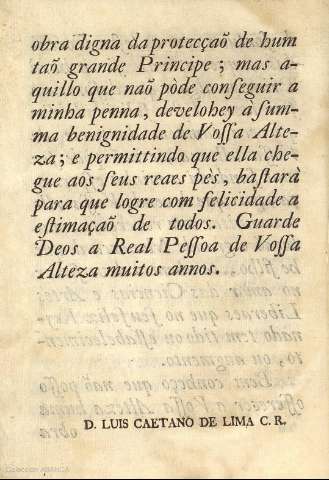 obra digna da protecçaõ de hum
taõ grande Principe ; mas a-
quillo que naõ pòde conseguir a
minha penna, develohey a sum-
ma benignidade de Vossa Alte-
za ; e permittindo que ella che-
gue aos seus reaes pès , bastarà
para que logre com felicidade a
estimaçaõ de todos. Guarde
Deos a Real Pessoa de Vossa
Alteza muitos annos.
D. LUIS CAETANO DE LIMA C. R.
Colección ABANCA